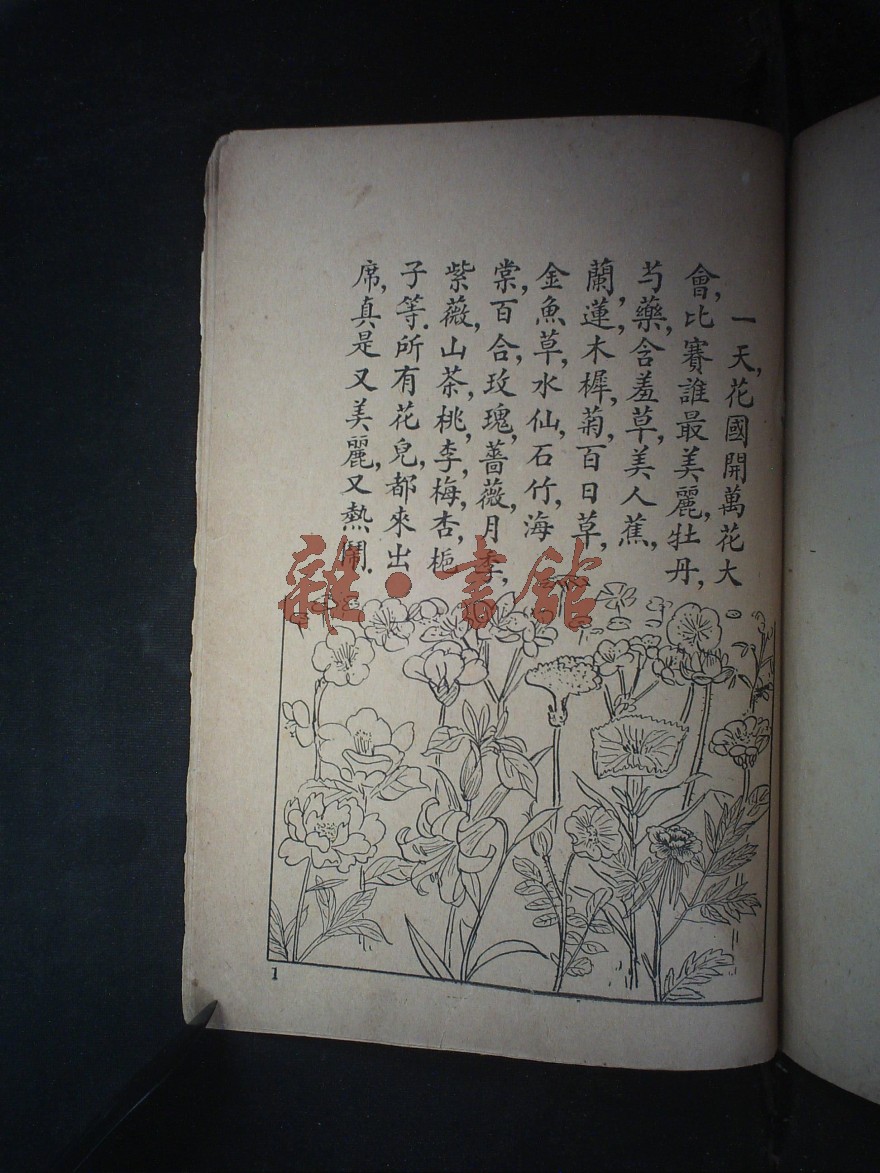 一天,花國開萬花大
會,比賽誰最美麗,牡丹,
芍藥,含羞草,美人蕉,
蘭,蓮,木樨,菊,百日草,
金魚草,水仙,石竹,海
棠,百合,玫瑰,薔薇,月季,
紫薇,山茶,桃,李,梅,杏,梔
子等.所有花兒,都來出
席,真是又美麗,又熱鬧.
雜·書館
1